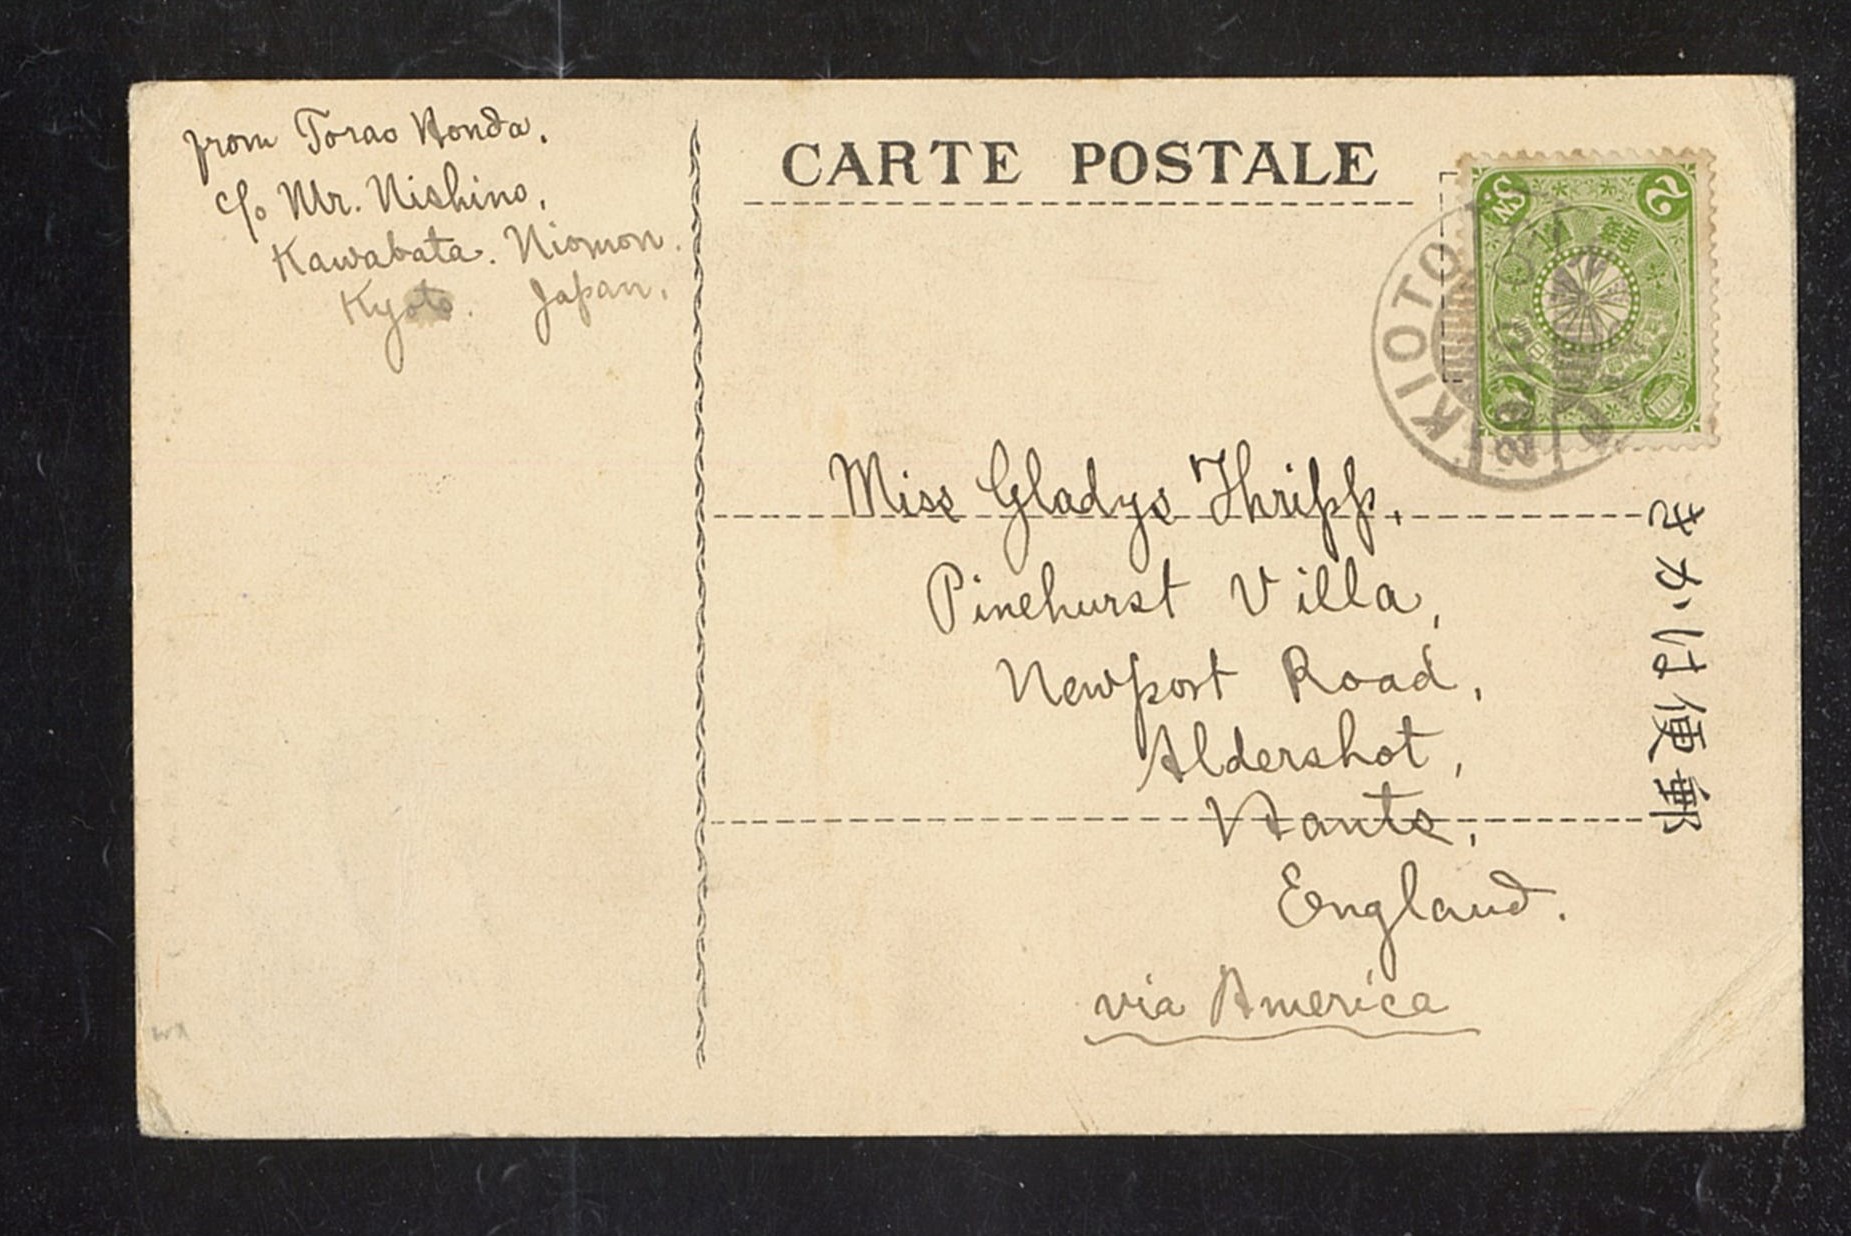 from Torao Honda,
c/o Mr. Nishino,
Kawabata. Niomon.
Kyoto. Japan.
CARTE POSTALE
2
Sn.
KIOTO
29
Miss Gladys Thripp,
Pinehurst Villa,
Newport Road,
Aldershot,
Hants,
England.
via America
きかは便郵